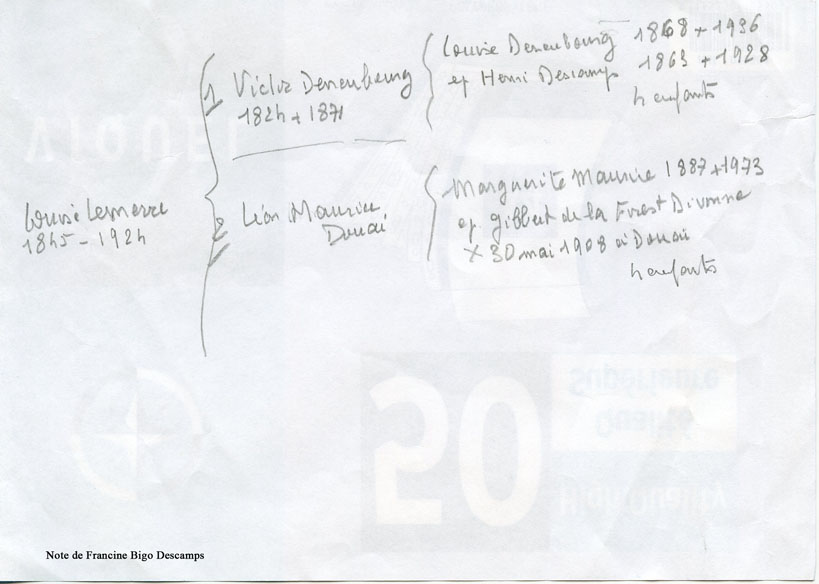 Louise Lemerre
1845 - 1924
1 Victor Denenbourg
1824 + 1871
Louise Denenbourg 1868 + 1936
ep Henri Descamps 1863 + 1928
4 enfants
2 Léon Maurice
Douai
Marguerite Maurice 1887 + 1973
ep Gilbert de la Forest Divonne
x 30 mai 1908 à Douai
4 enfants
VIQUEL
50
Supérieure
Qualité
High Quality
Note de Francine Bigo Descamps